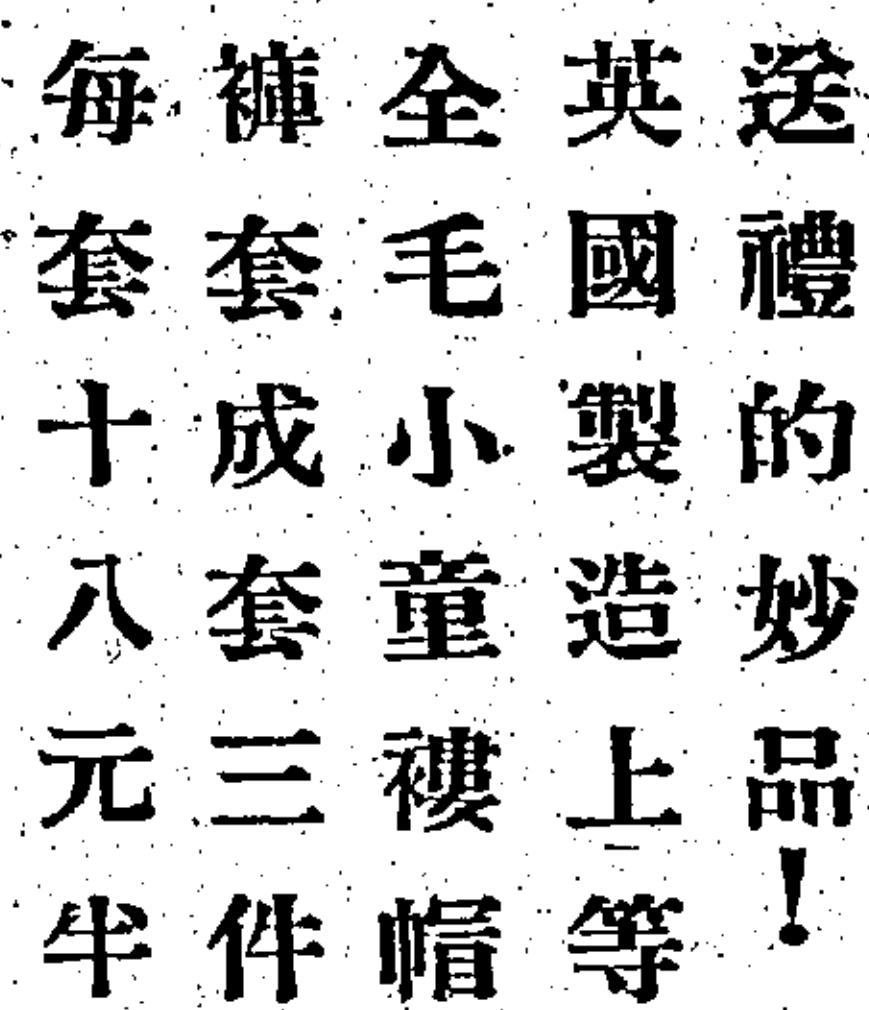 送禮的妙品!
英國製造上等
全毛小童褸帽
褲套成套三件
每套十八元半